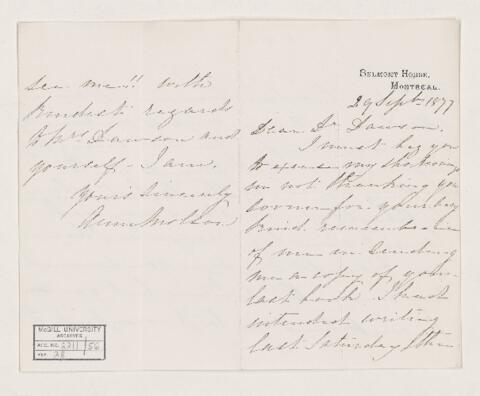 see me!! with
kindest regards
to Mrs Dawson and
yourself - I am,
Yours sincerely
Anne Molson
McGILL UNIVERSITY
ARCHIVES
ACC. NO. 2211/56
REF. 28
BELMONT HOUSE,
MONTREAL.
29 Sept 1877
Dear Dr Dawson,
I must beg you
to excuse my shortcoming
in not thanking you
sooner for your very
kind remembrance
of me in sending
me a copy of your
last book. I had
intended writing
last Saturday